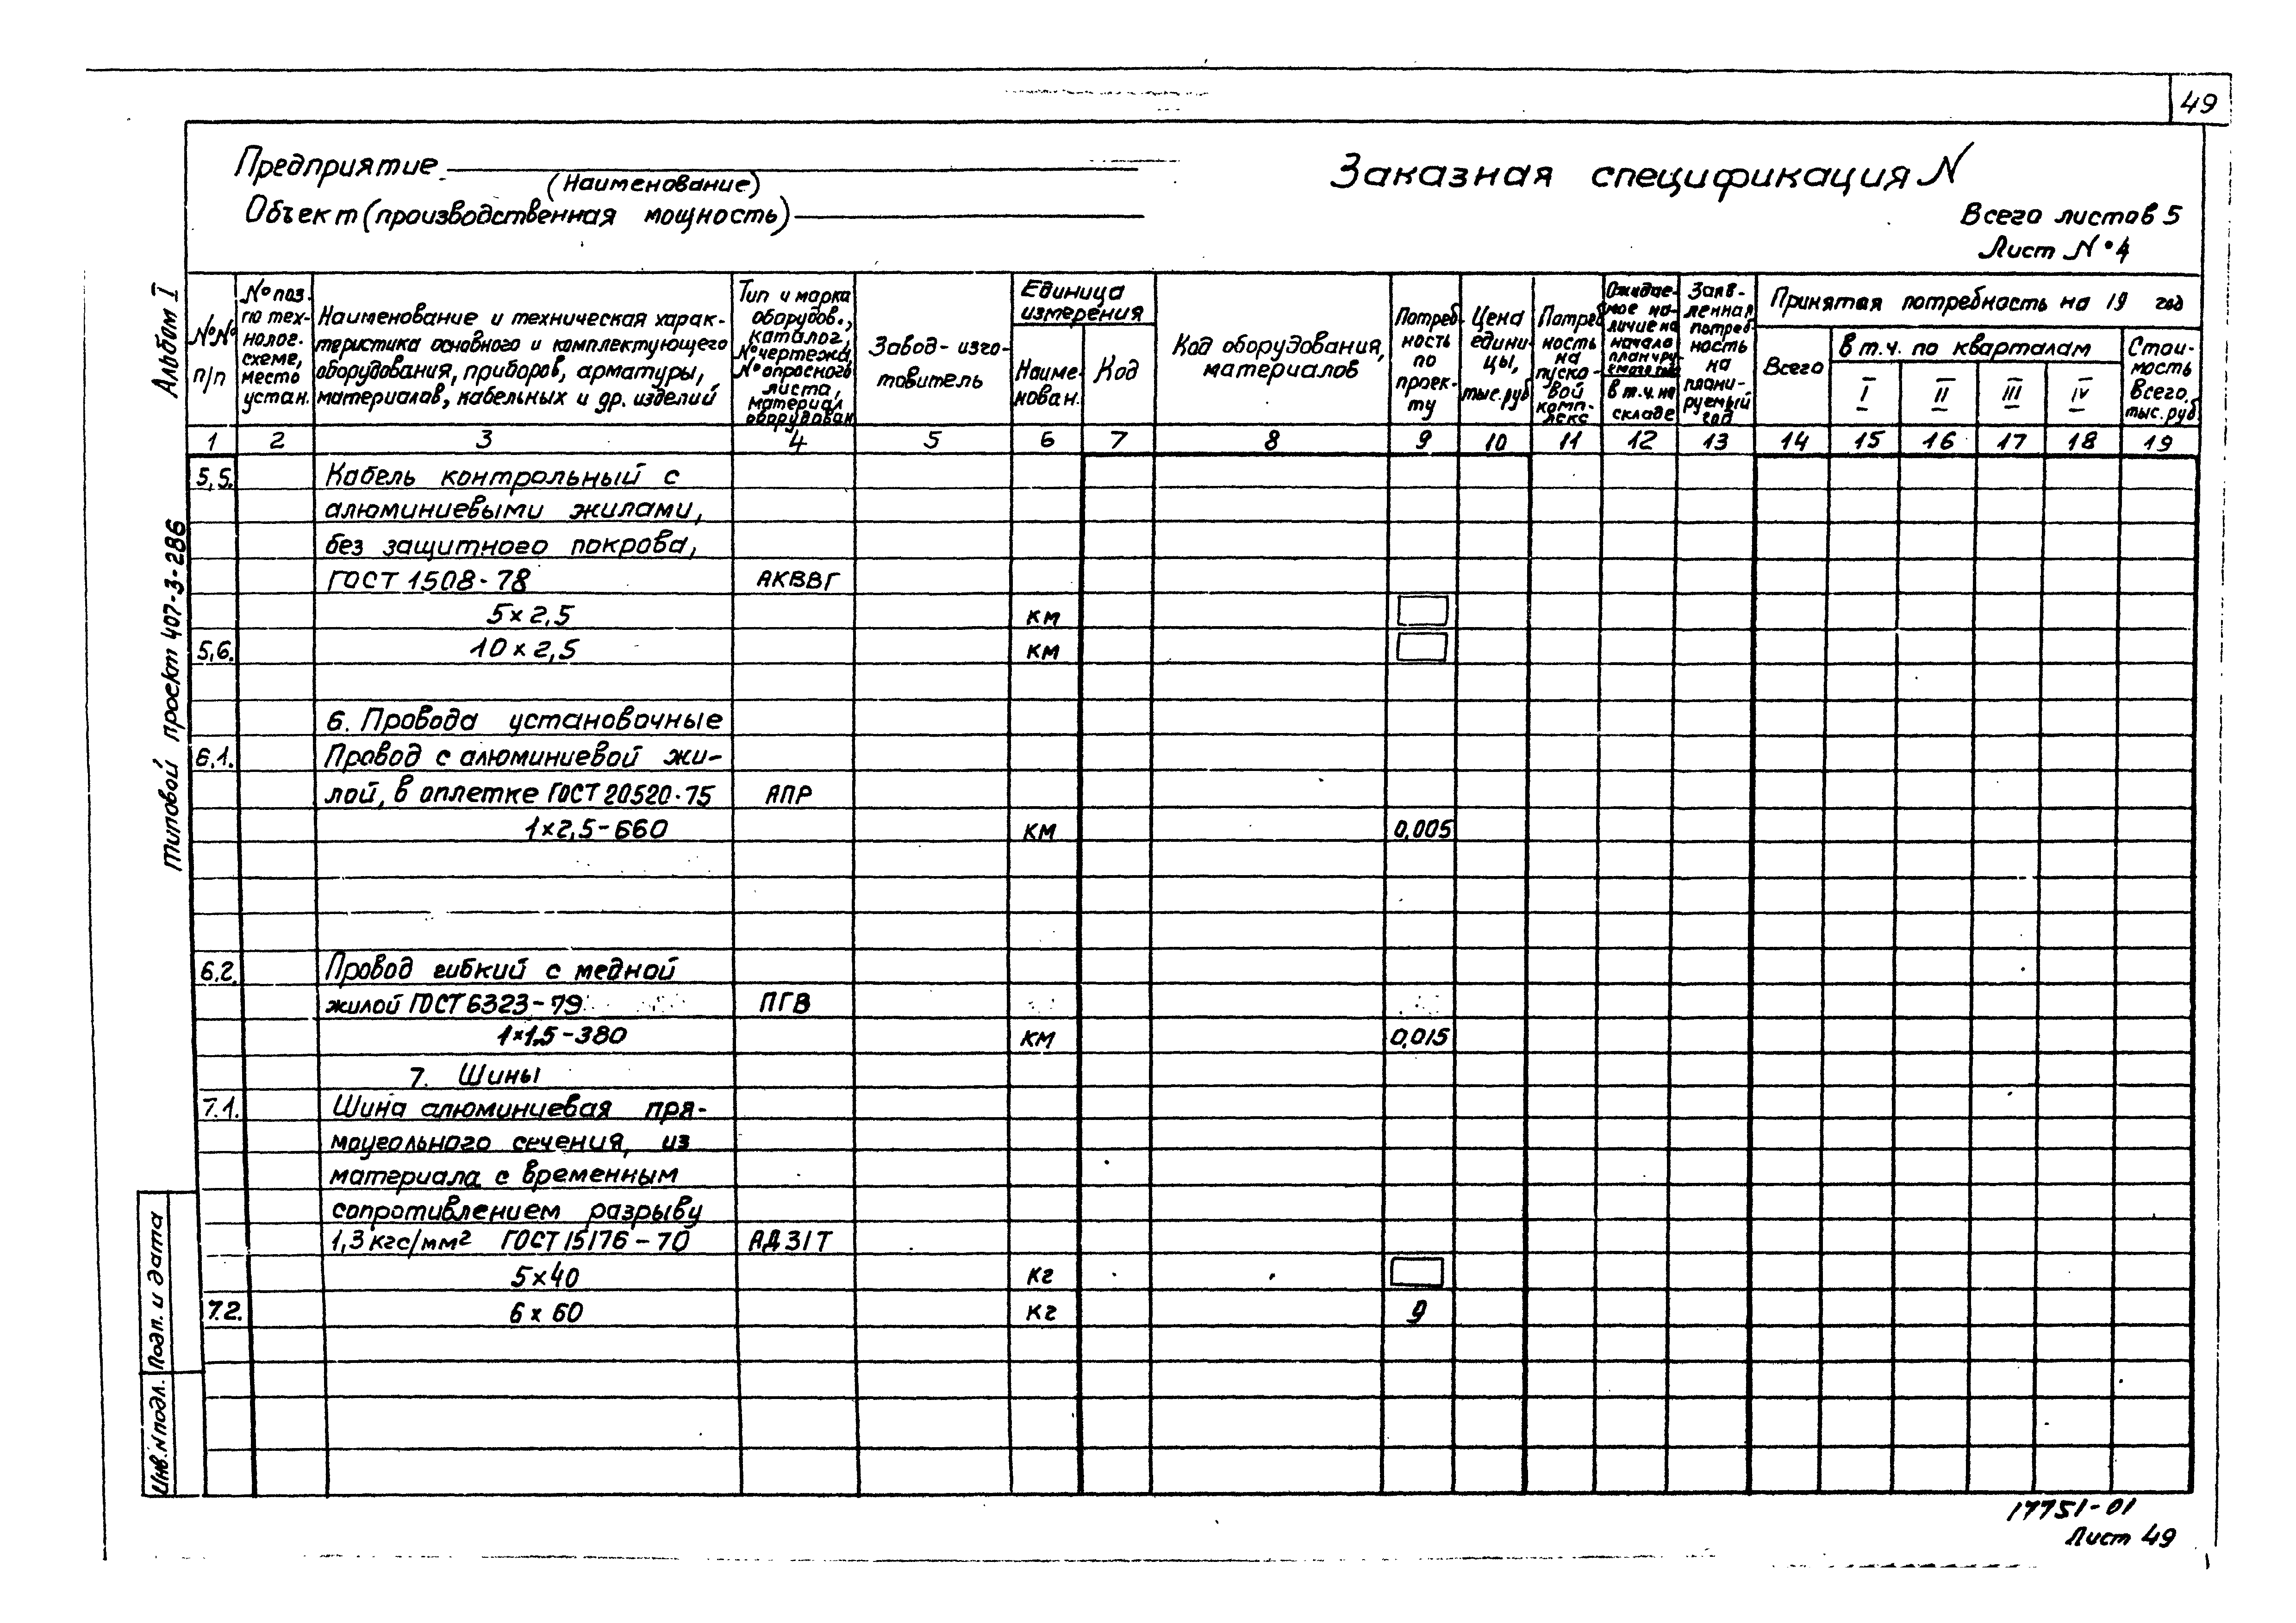 49
Предприятие
(Наименование)
Объект (производственная мощность)
Заказная спецификация N
Всего листов 5
Лист N° 4
Альбом I
типовой проект 407-3-286
N°N° п/п
N° поз. по технолог. схеме, место устан.
Наименование и техническая харак-
теристика основного и комплектующего
оборудования, приборов, арматуры,
материалов, кабельных и др. изделий
Тип и марка
оборудов.,
каталог,
N° чертежа,
N° опросного
листа,
материал
оборудован
Завод-изго-
товитель
Единица
измерения
Наиме-
нован.
Код
Код оборудования,
материалов
Потреб
ность
по
проек-
ту
Цена
едини-
цы,
тыс.руб
Потреб
ность
на
пуско-
вой
комп-
лекс
Ожидае-
мое на-
личие на
начало
планиру-
емого года
в т.ч. на
складе
Заяв-
ленная
потреб-
ность
на
плани-
руемый
год
Принятая потребность на 19 год
Всего
в т.ч. по кварталам
I II III IV
Стои-
мость
всего,
тыс.руб
1 2 3 4 5 6 7 8 9 10 11 12 13 14 15 16 17 18 19
5,5. Кабель контрольный с
алюминиевыми жилами,
без защитного покрова,
ГОСТ 1508-78 АКВВГ
5×2,5 км
5,6. 10×2,5 км
6. Провода установочные
6.1. Провод с алюминиевой жи-
лой, в оплетке ГОСТ 20520-75 АПР
1×2,5-660 км 0,005
6.2. Провод гибкий с медной
жилой ГОСТ 6323-79 ПГВ
1×1,5-380 км 0,015
7. Шины
7.1. Шина алюминиевая пря-
моугольного сечения, из
материала с временным
сопротивлением разрыву
1,3 кгс/мм² ГОСТ 15176-70 АД31Т
5×40 кг
7.2. 6×60 кг 9
Подп. и дата
Инв. N подл.
17751-01
Лист 49